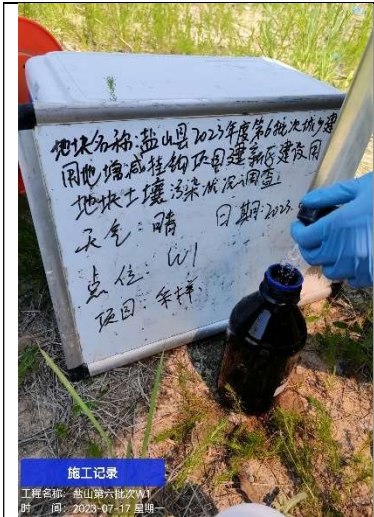 地块名称:盐山县2023年度第6批次城乡建
用地增减挂钩项目建新区建设用
地块土壤污染状况调查
天气:晴 日期:2023.
点位:W1
项目:采样
施工记录
工程名称: 盐山第六批次W1
时 间: 2023-07-17 星期一